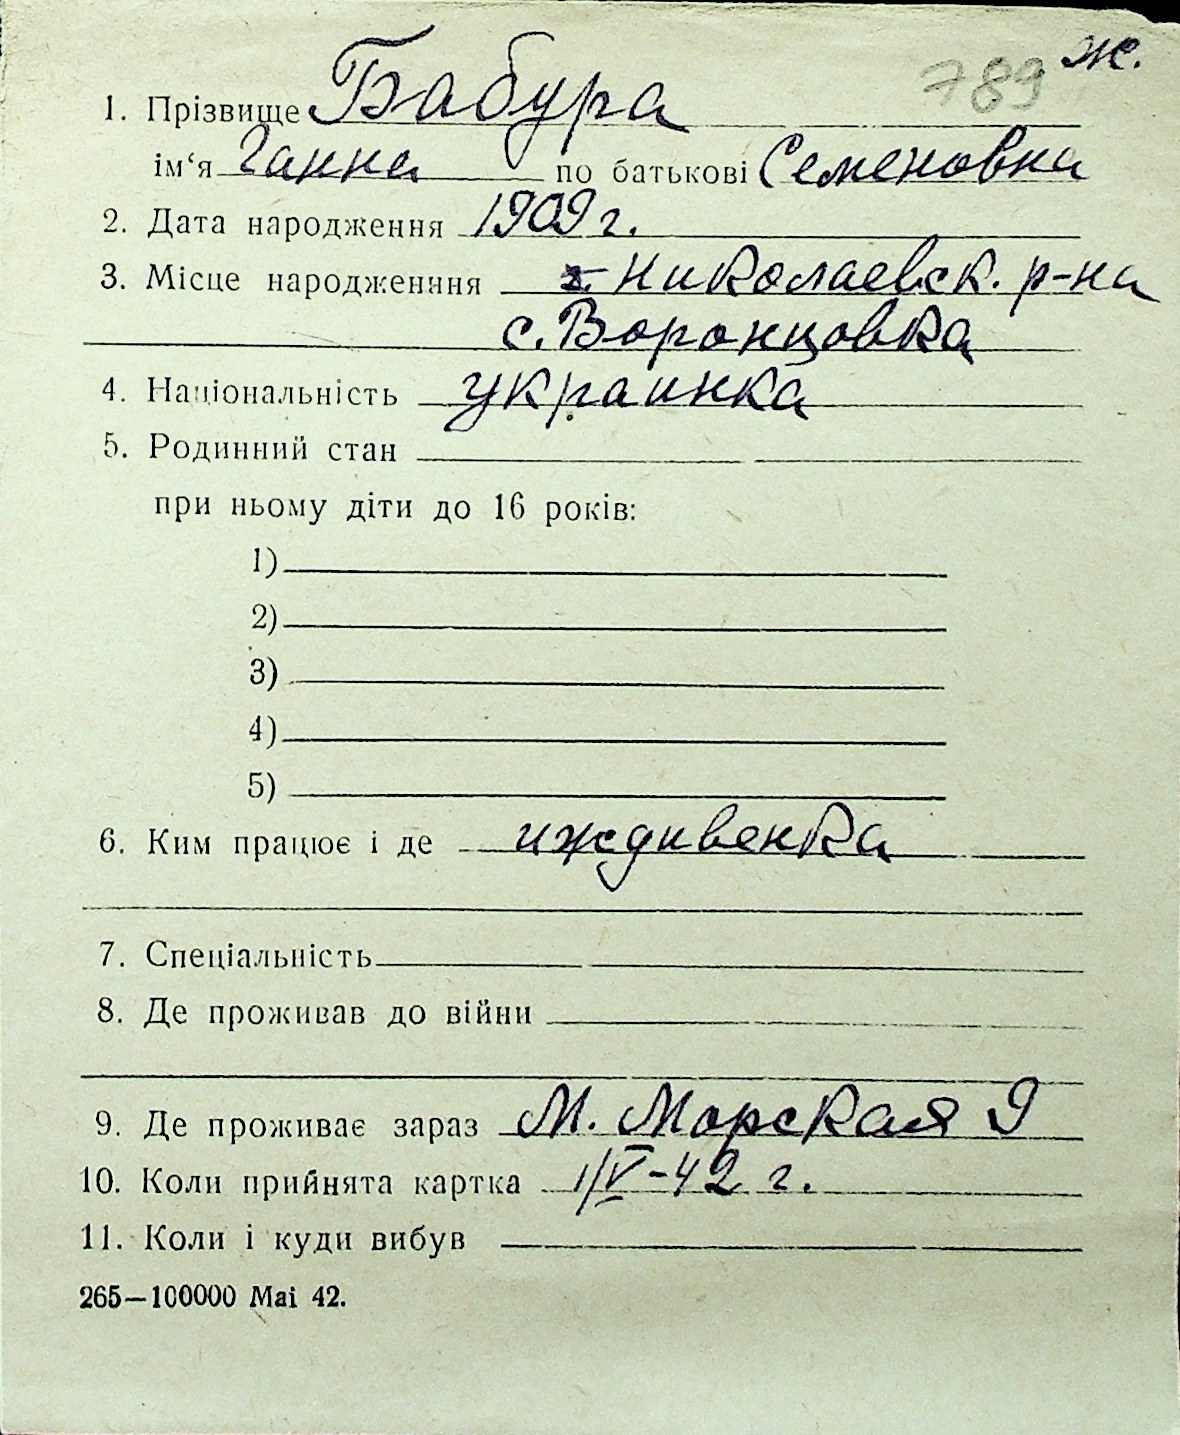 789 ж.
1. Прізвище Бабура
ім‘я Ганна по батькові Семеновна
2. Дата народження 1909 г.
3. Місце народженння Николаевск. р-на
с. Воронцовка
4. Національність украинка
5. Родинний стан
при ньому діти до 16 років:
1)
2)
3)
4)
5)
6. Ким працює і де иждивенка
7. Спеціальність
8. Де проживав до війни
9. Де проживає зараз М. Морская 9
10. Коли прийнята картка 1/V-42 г.
11. Коли і куди вибув
265—100000 Mai 42.